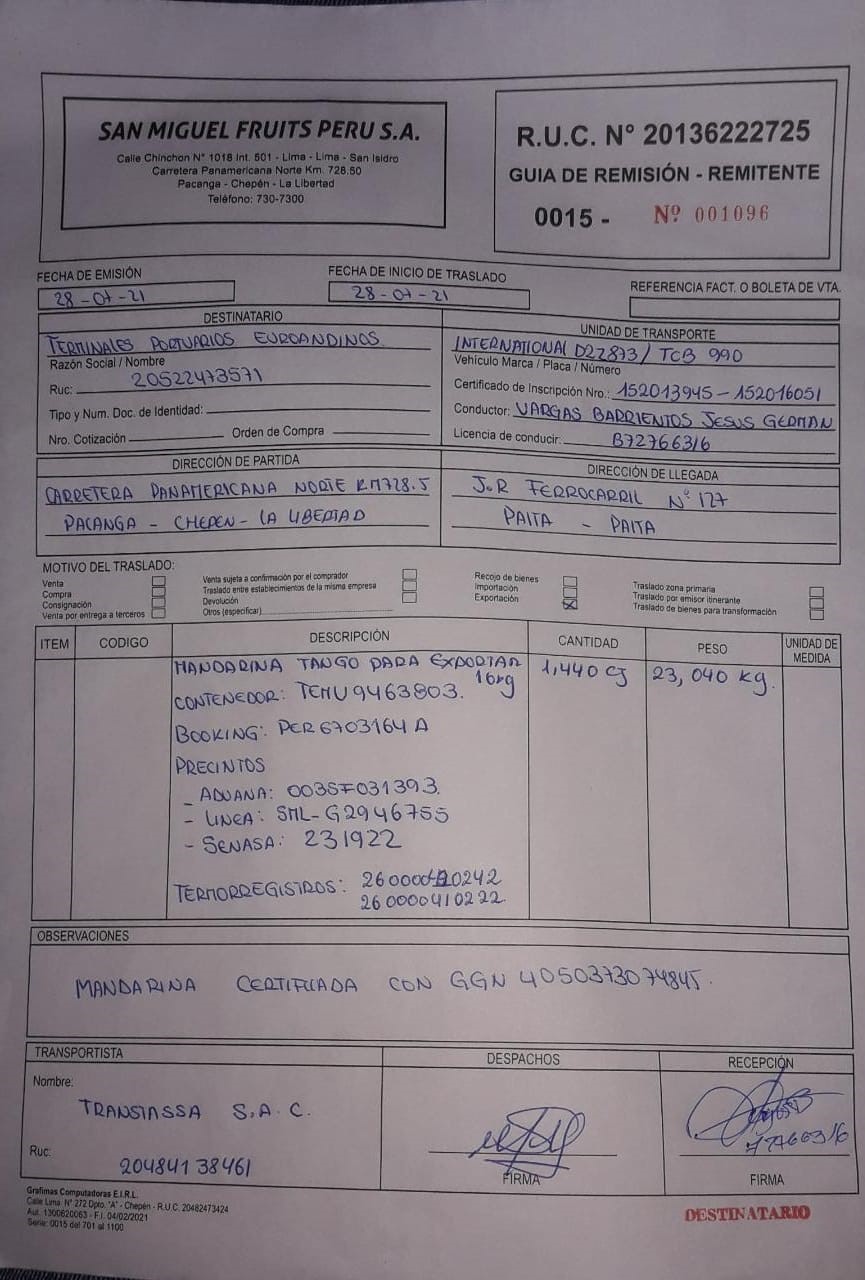 SAN MIGUEL FRUITS PERU S.A.
Calle Chinchon N° 1018 Int. 501 - Lima - Lima - San Isidro
Carretera Panamericana Norte Km. 728.50
Pacanga - Chepén - La Libertad
Teléfono: 730-7300
R.U.C. N° 20136222725
GUIA DE REMISIÓN - REMITENTE
0015 - Nº 001096
FECHA DE EMISIÓN
28-07-21
FECHA DE INICIO DE TRASLADO
28-07-21
REFERENCIA FACT. O BOLETA DE VTA.
DESTINATARIO
TERMINALES PORTUARIOS EUROANDINOS.
Razón Social / Nombre
Ruc: 20522473571
Tipo y Num. Doc. de Identidad:
Nro. Cotización Orden de Compra
UNIDAD DE TRANSPORTE
INTERNATIONAL D2Z873 / TCB 990
Vehículo Marca / Placa / Número
Certificado de Inscripción Nro.: 152013945 - 152016051
Conductor: VARGAS BARRIENTOS JESUS GERMAN
Licencia de conducir: B72766316
DIRECCIÓN DE PARTIDA
CARRETERA PANAMERICANA NORTE KM728.5
PACANGA - CHEPEN - LA LIBERTAD
DIRECCIÓN DE LLEGADA
J.R FERROCARRIL N° 127
PAITA - PAITA
MOTIVO DEL TRASLADO:
Venta
Compra
Consignación
Venta por entrega a terceros
Venta sujeta a confirmación por el comprador
Traslado entre establecimientos de la misma empresa
Devolución
Otros (especificar)
Recojo de bienes
Importación
Exportación
Traslado zona primaria
Traslado por emisor itinerante
Traslado de bienes para transformación
ITEM CODIGO DESCRIPCIÓN CANTIDAD PESO UNIDAD DE MEDIDA
MANDARINA TANGO PARA EXPORTAR 1,440 CJ 23,040 kg.
16kg
CONTENEDOR: TEMU9463803.
BOOKING: PER6703164A
PRECINTOS
- ADUANA: 003SF031393.
- LINEA: SML-G2946755
- SENASA: 231922
TERMORREGISTROS:
260000410222.
OBSERVACIONES
MANDARINA CERTIFICADA CON GGN 4050373074845.
TRANSPORTISTA
Nombre:
TRANSIASSA S.A.C.
Ruc:
20484138461
DESPACHOS
FIRMA
RECEPCIÓN
FIRMA
Grafimas Computadoras E.I.R.L.
Calle Lima N° 272 Dpto. "A" - Chepén - R.U.C. 20482473424
Aut. 1300620063 - F.I. 04/02/2021
Serie: 0015 del 701 al 1100
DESTINATARIO